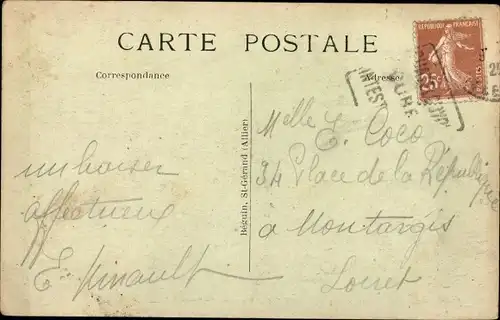 CARTE POSTALE
Correspondance
Adresse
REPUBLIQUE FRANÇAISE
25c
POSTES
Béguin, St-Gérand (Allier).
un baiser
affectueux
E. Minault
Melle E. Coco
34 Place de la République
à Montargis
Loiret